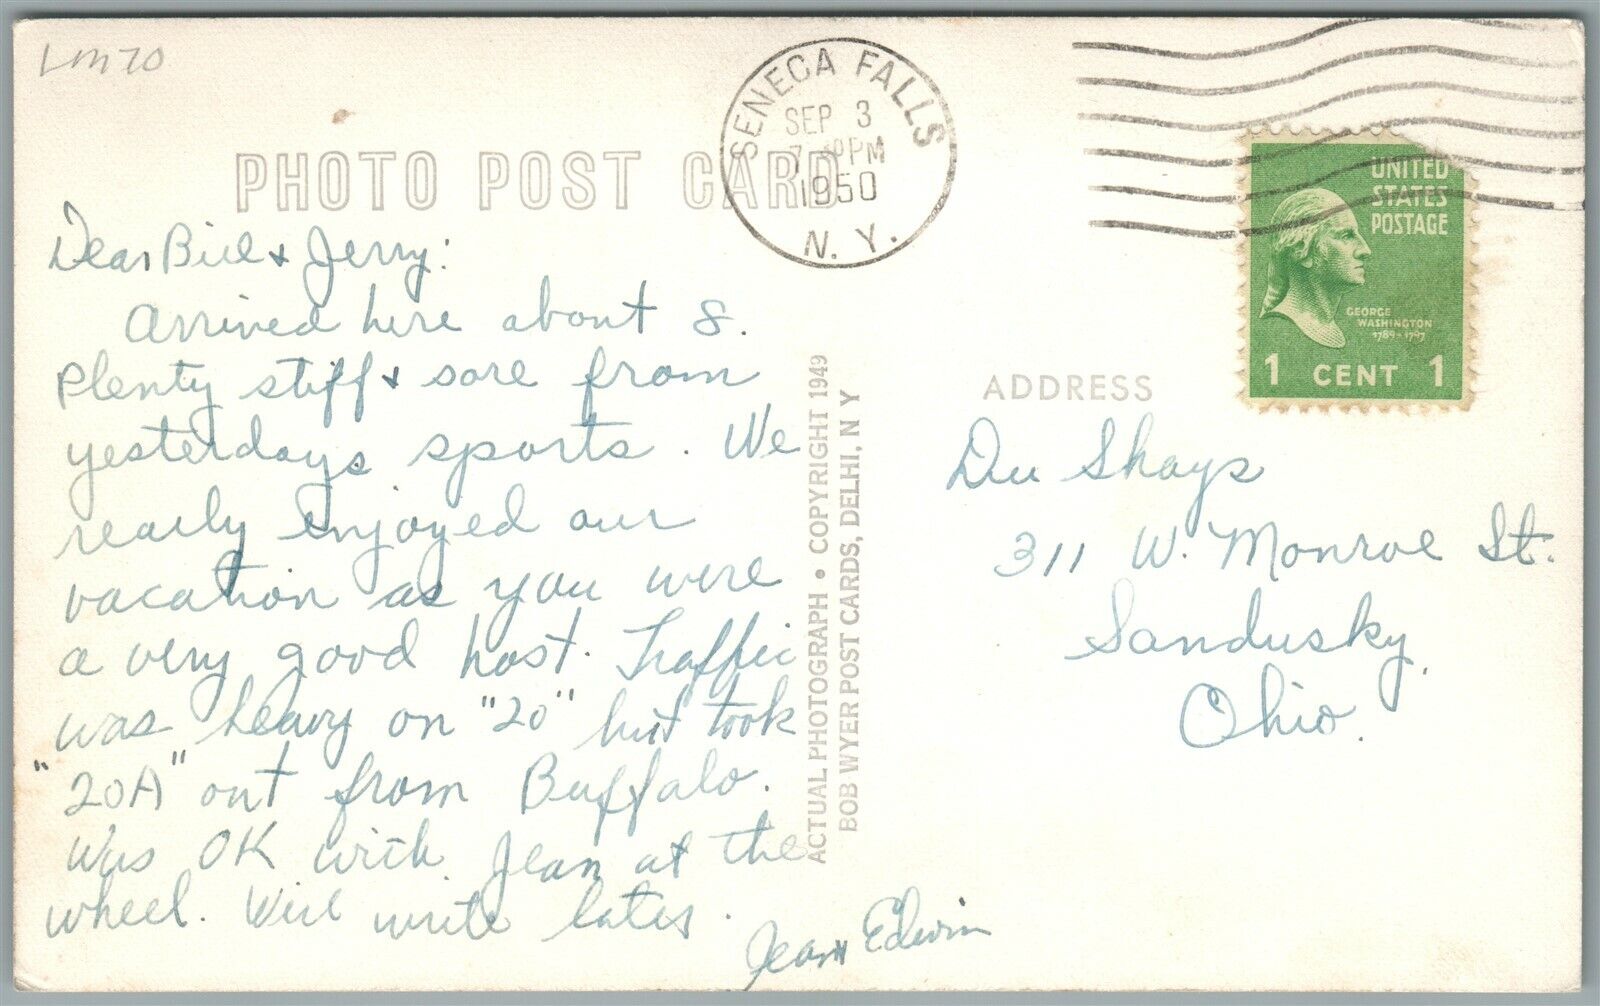 Lm70
PHOTO POST CARD
SENECA FALLS
SEP 3
7 30 PM
1950
N. Y.
UNITED
STATES
POSTAGE
GEORGE
WASHINGTON
1789-1797
1 CENT 1
Dear Bill & Jerry:
Arrived here about 8.
Plenty stiff & sore from
yesterdays sports. We
really enjoyed our
vacation as you were
a very good host. Traffic
was heavy on "20" but took
"20A" out from Buffalo.
Was OK with Jean at the
wheel. Will write later.
Jean & Edwin
ACTUAL PHOTOGRAPH • COPYRIGHT 1949
BOB WYER POST CARDS, DELHI, N Y
ADDRESS
Shays
311 W. Monroe St.
Sandusky,
Ohio.